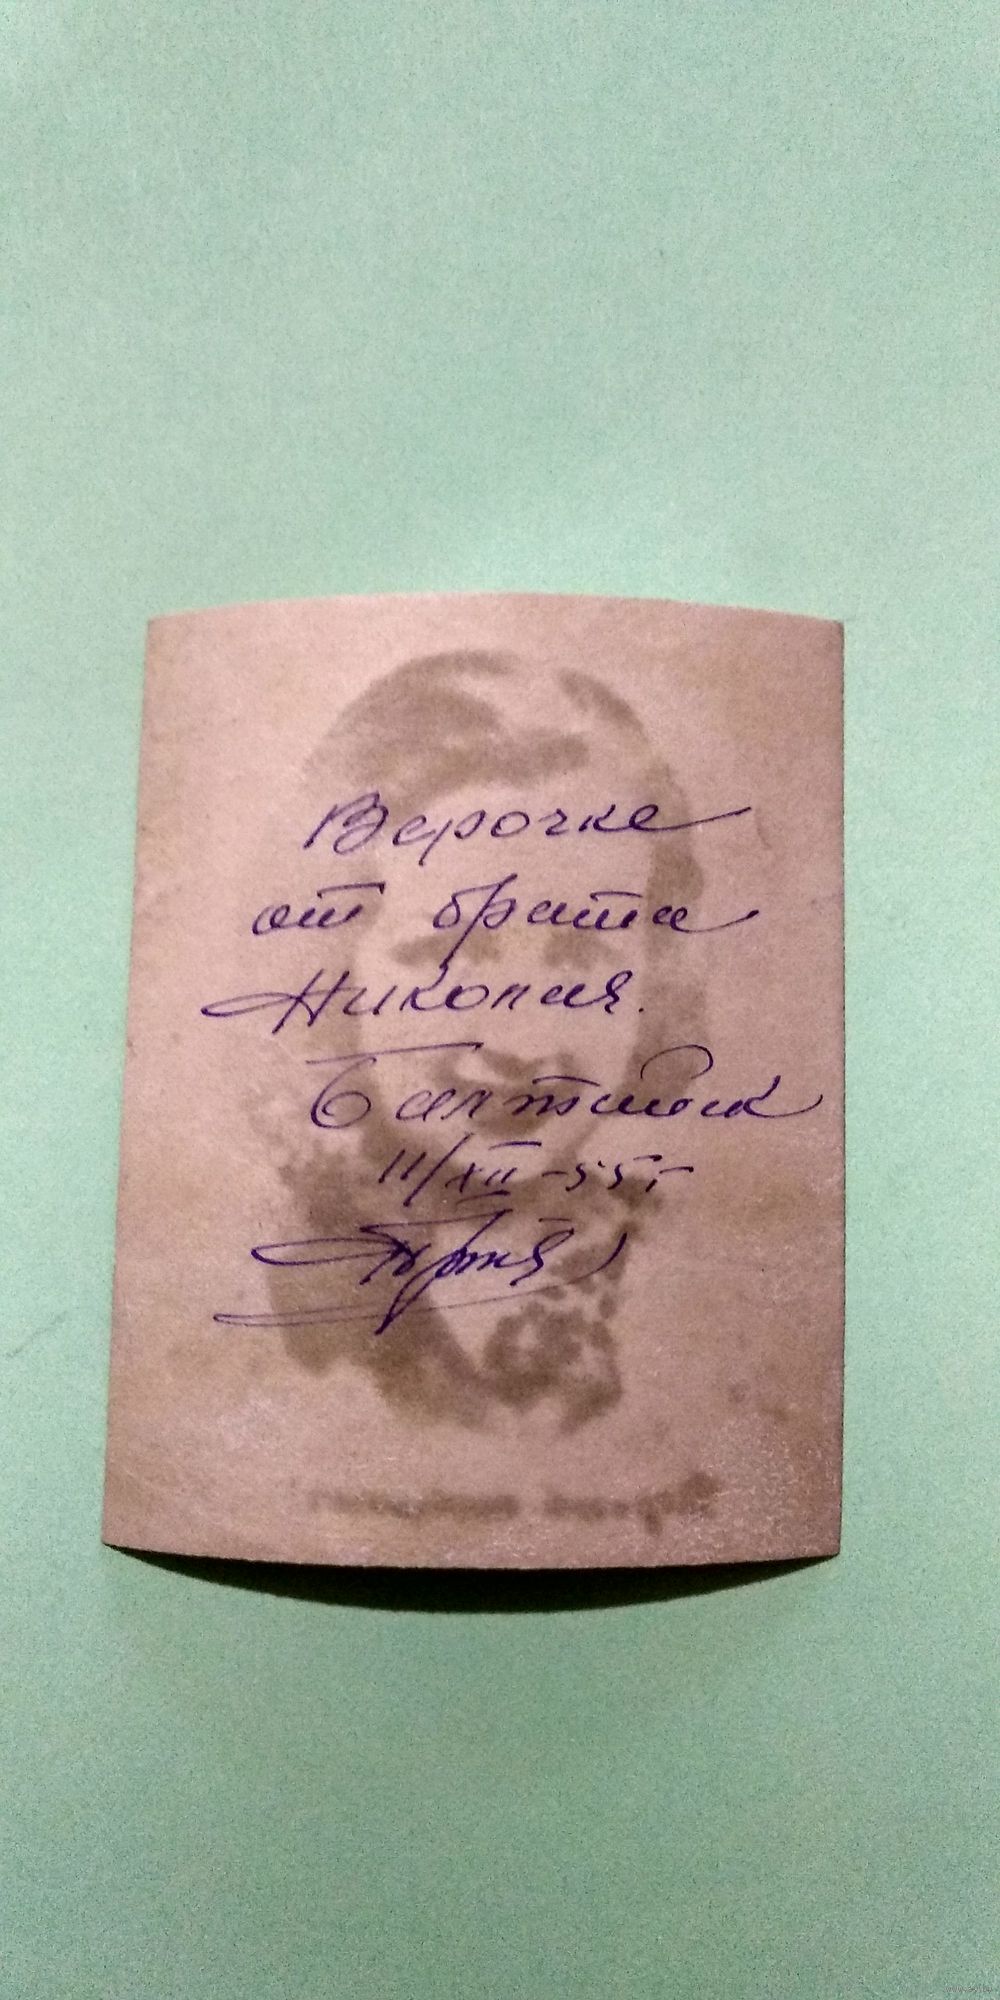 Верочке
от брата
Николая.
Балтийск
11/XII-55 г